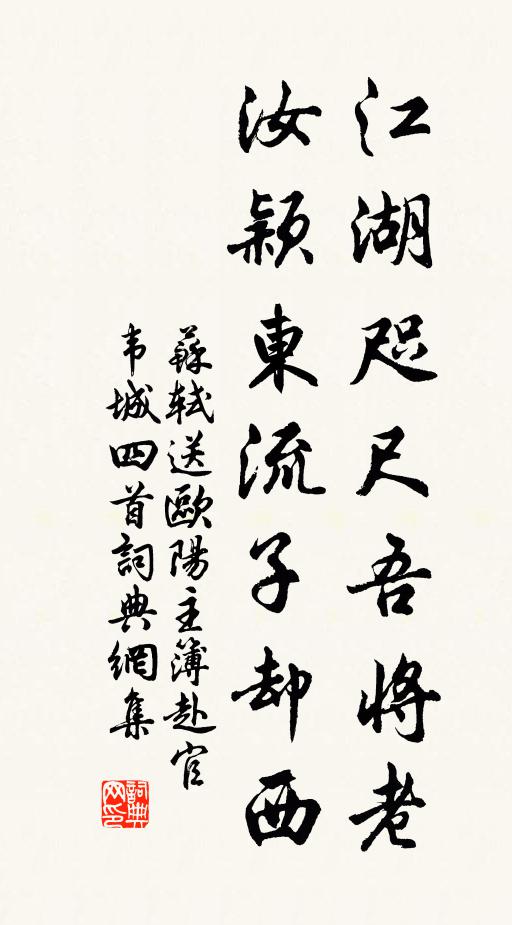 江湖咫尺吾將老
汝潁東流子却西
蘇軾送歐陽主簿赴官
韦城四首詞典網集
詞典
网印